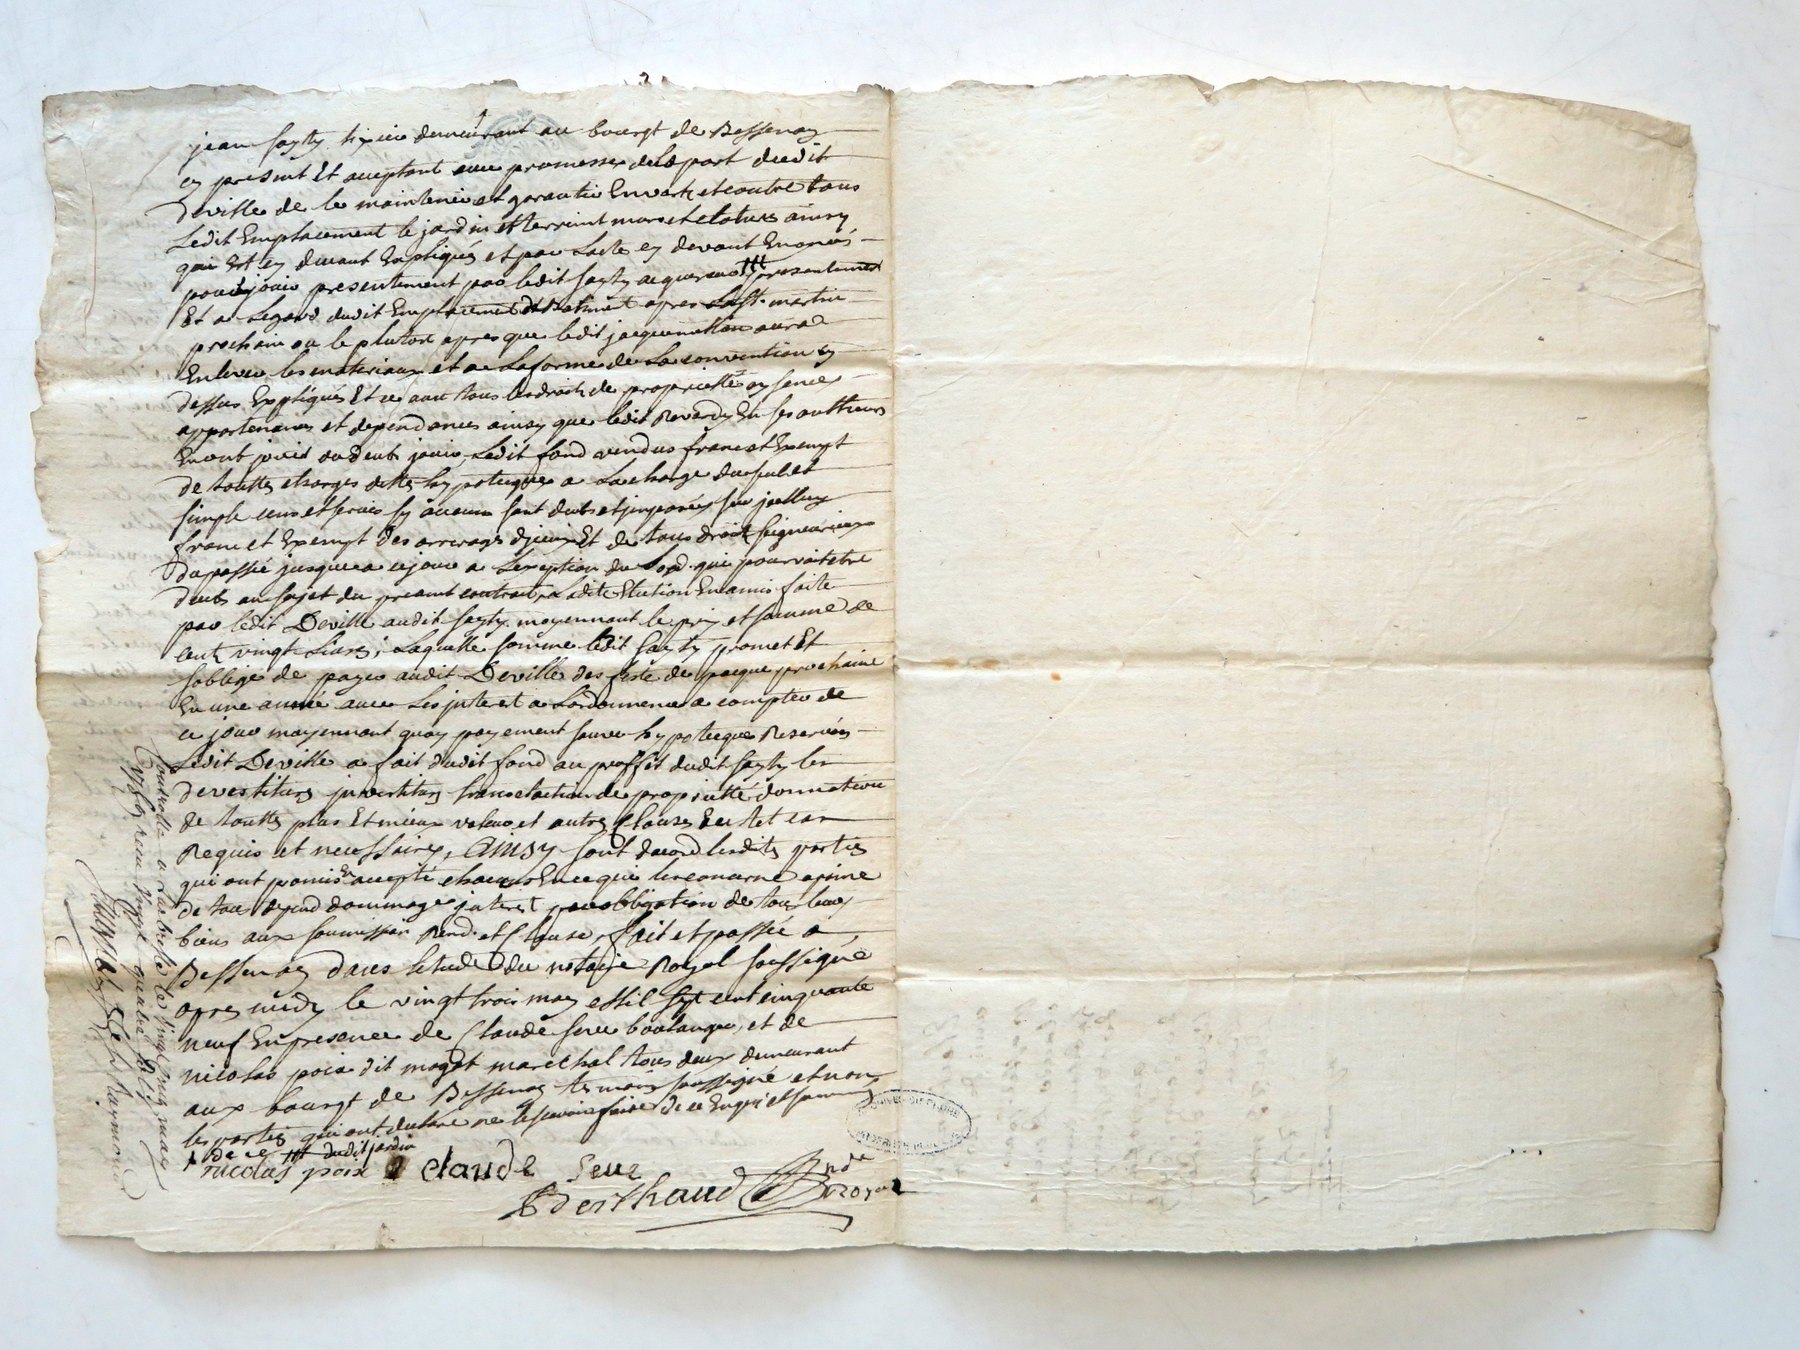 jean sayty tixier demeurant au bourgt de Bessenay
cy present Et aceptant avec promesses de la part dudit
Deville de le maintenir et garantir Envers et contre tous
Ledit Emplacement le jardin et murs et cloture ainsy
qui Est cy devant Expliqués et par Lacte cy devant Enoncés
pour jouir presentement par ledit sayty acquereur presentement
Et a Legard dudit Emplacement apres La st martin
prochain ou le plutost apres que ledit jacquemetton aura
Enlevé les materiaux et a La forme de La convention cy
dessus Expliqués Et ce avec tous les droits de proprietté aysences
appartenances et dependances ainsy que ledit Reverdy Et ses autheurs
En ont jouit ou deub jouir, Ledit fond vendus franc et Exempt
de touttes charges dettes hypoteques a La charge du seul et
simple cens et servis sy aucuns sont deubs et imposés sur jcelluy
franc et Exempt des arrerages djceux Et de tous droits seigneuriaux
du passé jusques a cejour a Lexeption du Lod qui pourroit etre
deub au sujet du present contrat, Ladite Election En amis faite
par ledit Deville audit sayty moyennant le prix et somme de
cent vingt Livres, Laquelle somme ledit sayty promet Et
soblige de payer audit Deville des feste de paque prochaine
En une année avec Les jnterest a Lordonnence a compter de
ce jour moyennant quoy payement sauve hypotecque Reservés
Ledit Deville a fait dudit fond au proffit dudit sayty les
devestitures jnvestitures translaction de proprietté donnation
de touttes plus Et mieux value et autres Clauses
Requis et necessaires, Ainsy sont dacord lesdites parties
qui ont promis Et accepté chacuns En ce qui les concerne a peine
de tous depend dommages jnterest par obligation de tous leurs
biens aux soumission Rend. et Clause, fait et passée a
Bessenay dans letude du notaire Royal soussigné
apres midy le vingt trois may mil sept cent cinquante
neuf En presence de Claude serre boulanger, et de
nicolas poix dit magot marechal tous deux demeurant
aux bourgt de Bessenay temoins soussigné et non
les parties qui ont declaré ne le scavoir faire de ce Enquis et sommés
de ce ttt dudit jardin
nicolas poix claude seve
Berthaud nore Royal
Controllé a Larbresle le vingt cinq may
1759 Receu vingt quatre sols